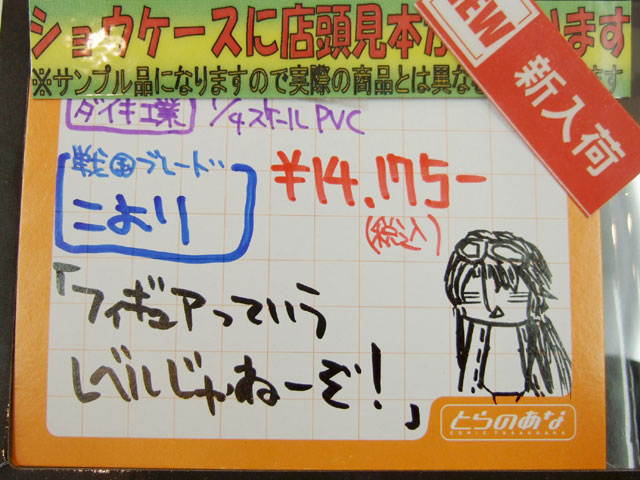 ショウケースに店頭見本が
ります
※サンプル品になりますので実際の商品とは異な
ます
NEW
新入荷
ダイキ工業
1/4スケール PVC
戦国ブレード
こより
¥14,175-
(税込)
「フィギュアっていう
レベルじゃねーぞ!」
とらのあな
COMIC TORANOANA